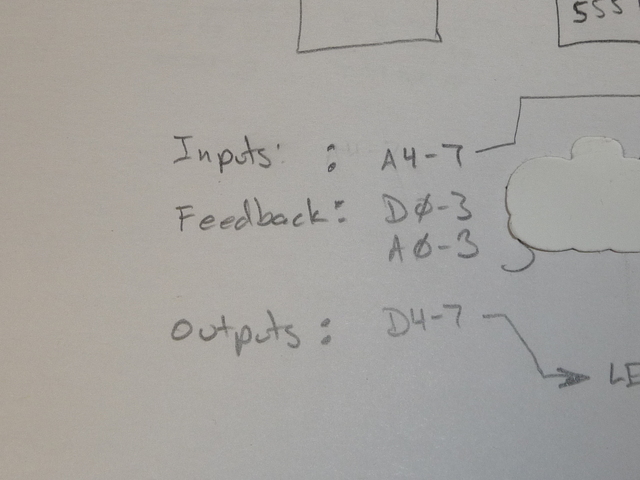 555
Inputs: A4-7
Feedback: DØ-3
AØ-3
Outputs: D4-7
LE